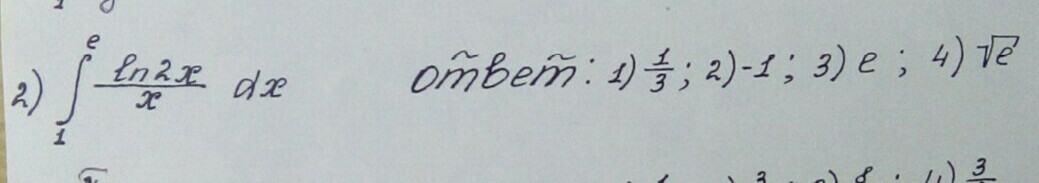 2) ∫₁ᵉ ln2x/x dx ответ: 1) 1/3; 2) -1; 3) e; 4) √e